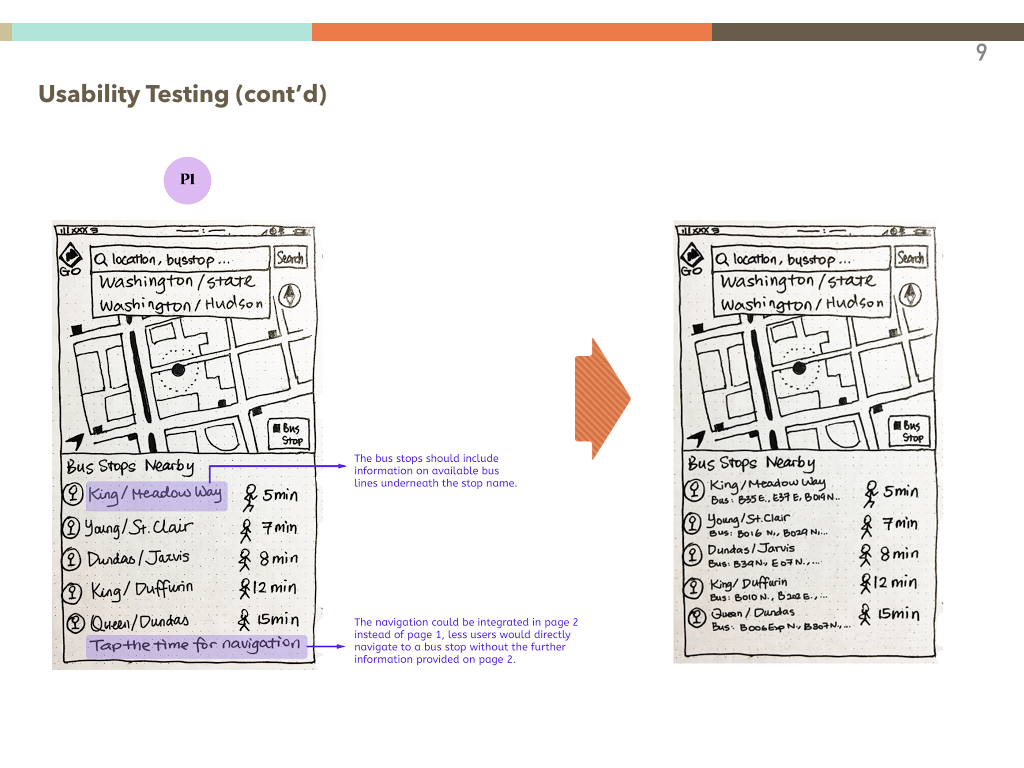 9
Usability Testing (cont'd)
P1
GO
location, busstop ...
Search
Washington/State
Washington/Hudson
Bus
Stop
Bus Stops Nearby
King/Meadow Way
5min
Young/St. Clair
7min
Dundas/Jarvis
8min
King/Duffurin
12 min
Queen/Dundas
15min
Tap the time for navigation
The bus stops should include
information on available bus
lines underneath the stop name.
The navigation could be integrated in page 2
instead of page 1, less users would directly
navigate to a bus stop without the further
information provided on page 2.
GO
location, busstop ...
Search
Washington/State
Washington/Hudson
Bus
Stop
Bus Stops Nearby
King/Meadow Way
Bus: B35E., E37E, B019N..
5min
Young/St.Clair
Bus: B016 N., B029 N,...
7min
Dundas/Jarvis
Bus: B39N., E07N.,...
8min
King/Duffurin
Bus: B010 N., B202E.,...
12 min
Queen/Dundas
Bus: B006Exp N., B807N.,...
15min